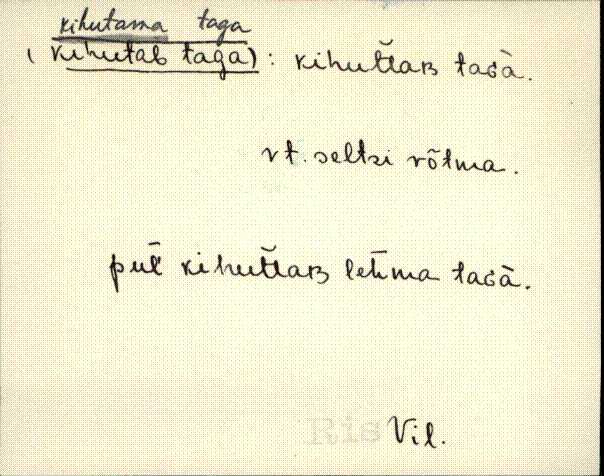 kihutama taga
(kihutab taga) : kihut̆taʙ taɢà.
vt. seltsi võtma.
pul̄ kihut̆taʙ leh̄ma taɢà.
Ris Vil.